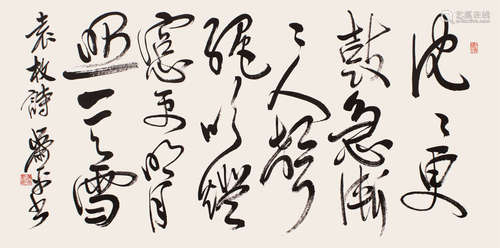 沈〻更
鼓急漸
〻人聲
絕吹燈
窓更明月
照一天雪
袁枚詩 書